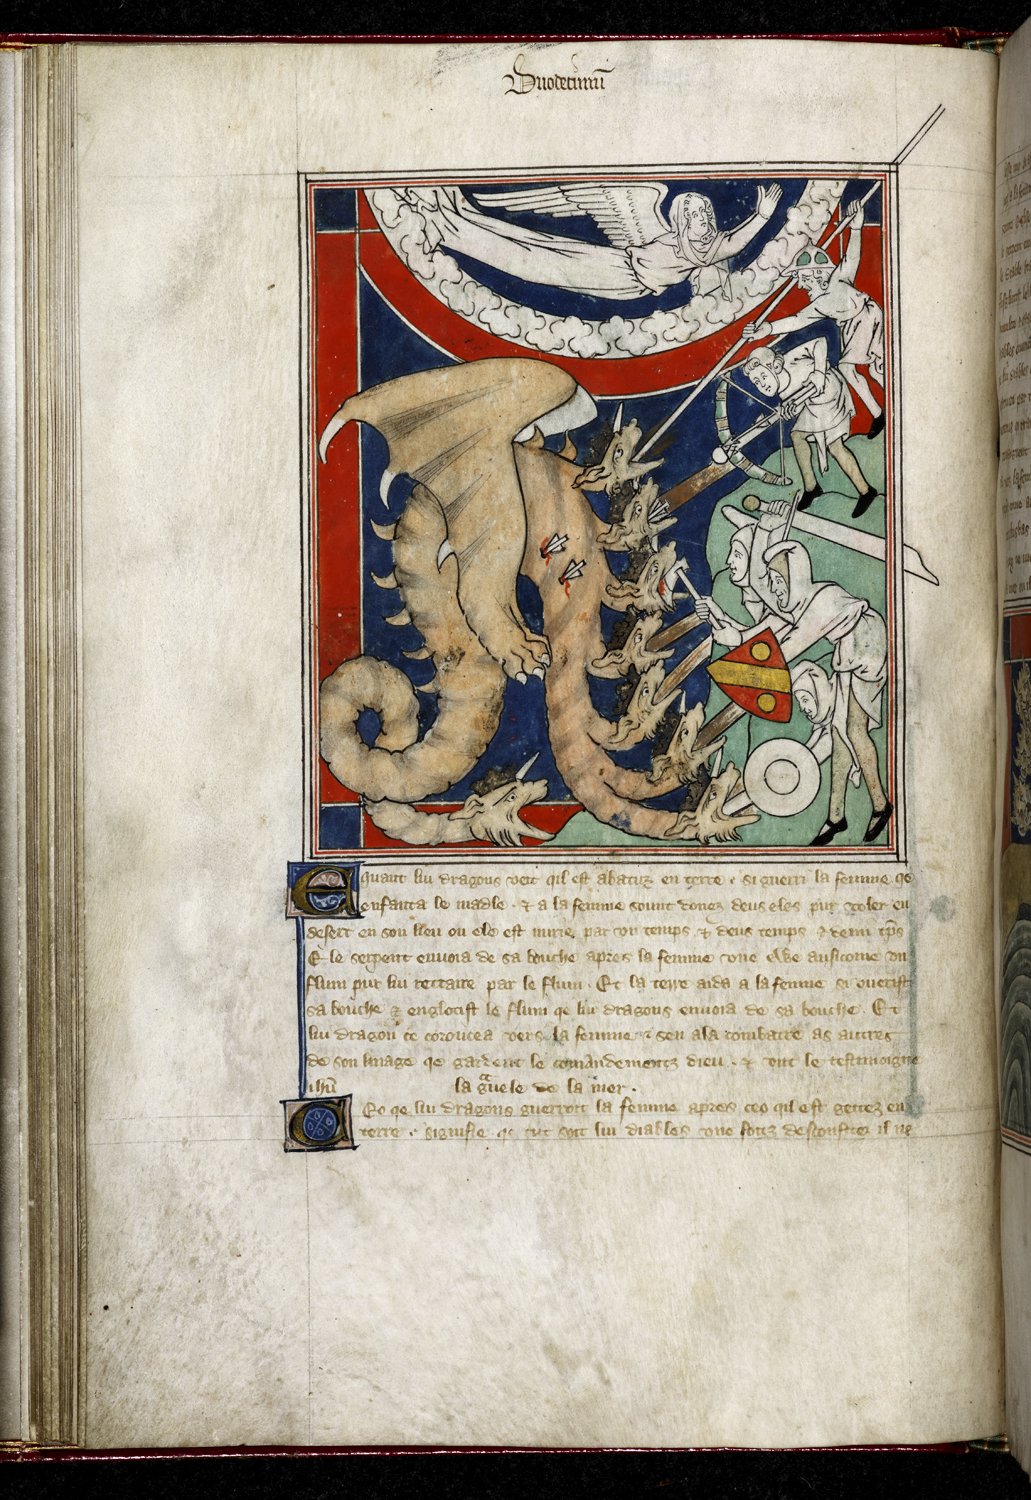 Duodecimu
E quant liu dragons veit qil est abatuz en terre . si guerri la femme qe
enfanta le madle . & a la femme sount donez deus eles pur voler en
desert en son lieu ou ele est nurie par un temps & deus temps & demi tps
Et le serpent envoia de sa bouche apres la femme une ewe ausicome un
flum pur lui terraire par le flum . Et la terre aida a la femme si overist
sa bouche & englotist le flum qe liu dragons envoia de sa bouche . Et
liu dragon ce corucea vers la femme & sen ala combatre as autres
de son linage qe gardent le comandementz dieu . & unt le testimoigne
ihu la gravele de la mer .
Ceo qe liu dragons guerroit la femme apres ceo qil est gettez en
terre . signifie qe tut soit liu diables une foiz desconfitez il ne